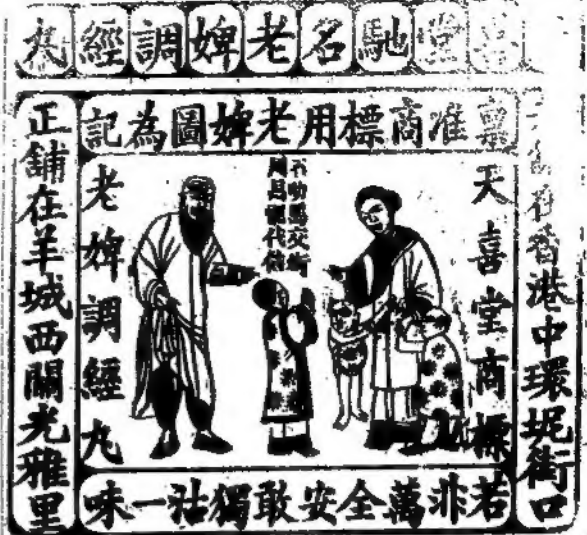 喜堂馳名老婢調經丸
稟准商標用老婢圖為記
在香港中環坭街口
天喜堂商標
老婢調經丸
正舖在羊城西關光雅里
若非萬全安敢獨沽一味